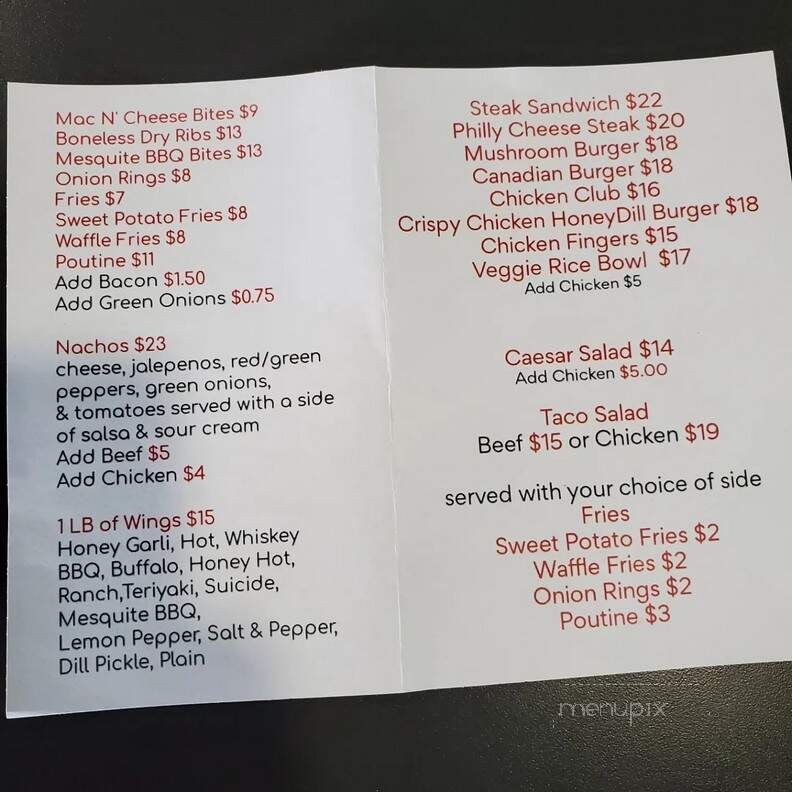 Mac N' Cheese Bites $9
Boneless Dry Ribs $13
Mesquite BBQ Bites $13
Onion Rings $8
Fries $7
Sweet Potato Fries $8
Waffle Fries $8
Poutine $11
Add Bacon $1.50
Add Green Onions $0.75
Nachos $23
cheese, jalepenos, red/green
peppers, green onions,
& tomatoes served with a side
of salsa & sour cream
Add Beef $5
Add Chicken $4
1 LB of Wings $15
Honey Garli, Hot, Whiskey
BBQ, Buffalo, Honey Hot,
Ranch,Teriyaki, Suicide,
Mesquite BBQ,
Lemon Pepper, Salt & Pepper,
Dill Pickle, Plain
Steak Sandwich $22
Philly Cheese Steak $20
Mushroom Burger $18
Canadian Burger $18
Chicken Club $16
Crispy Chicken HoneyDill Burger $18
Chicken Fingers $15
Veggie Rice Bowl $17
Add Chicken $5
Caesar Salad $14
Add Chicken $5.00
Taco Salad
Beef $15 or Chicken $19
served with your choice of side
Fries
Sweet Potato Fries $2
Waffle Fries $2
Onion Rings $2
Poutine $3
menupix